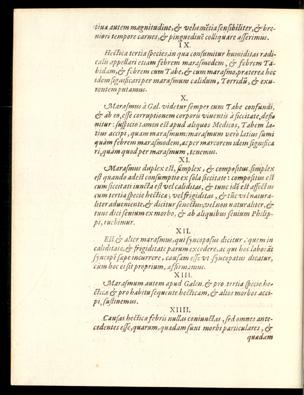 tiua autem magnitudine, & vehemētia sensibiliter, & bre-
uiori tempore carnes, & pinguedinē colliquare asserimus.
IX.
Hectica tertia species, in qua consumitur humiditas radi-
calis appellari etiam febrem marasmodem, & febrem Ta-
bidam, & febrem cum Tabe, & cum marasmo, præterea hoc
idem significari per marasmum calidum, Torridū, & exu-
rentem putamus.
X.
Marasmus à Gal. videtur semper cum Tabe confundi,
& ab eo, esse corruptionem corporis viuentis à siccitate, defi-
nitur: suspicio tamen est apud aliquos Medicos, Tabem la-
tius accipi, quam marasmum: marasmum verò latius sumi
quàm febrem marasmodem, ac per marcorem idem significa
ri, quàm quod per marasmum, tenemus.
XI.
Marasmus duplex est, simplex, & compositus. simplex
est quando adest consumptio ex sola siccitate: compositus est
cum siccitati iuncta est vel caliditas, & tunc idē est affectus
cum tertia specie hectica: vel frigiditas, & tūc vel natura-
liter adueniente, & dicitur senectus, vel non naturaliter, &
tunc dicitur senium ex morbo, & ab aliquibus senium Philip-
pi, vocabitur.
XII.
Est & alter marasmus, qui syncoposus dicitur, quem in
caliditate, & frigiditate parum excedere, ac qui hoc laborāt
syncopi sæpe incurrere, causam esse vt syncoposus dicatur,
cum hoc ei sit proprium, affirmamus.
XIII.
Marasmum autem apud Galen. & pro tertia specie he-
cticæ & pro habitu sequente hecticam, & alios morbos acci-
pi, sustinemus.
XIIII.
Causas hecticæ febris nullas coniunctas, sed omnes ante-
cedentes esse, quarum quædam sunt morbi particulares, &
quædam